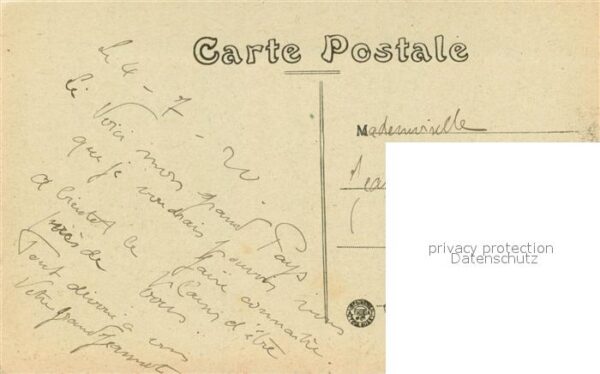 Carte Postale
Le 4 - 7 - 20.
Voici mon grand Pays
que je voudrais pouvoir vous
faire connaitre.
A bientôt le plaisir d'être
près de vous.
Tout dévoué à vous
Votre grand
Mademoiselle
privacy protection
Datenschutz